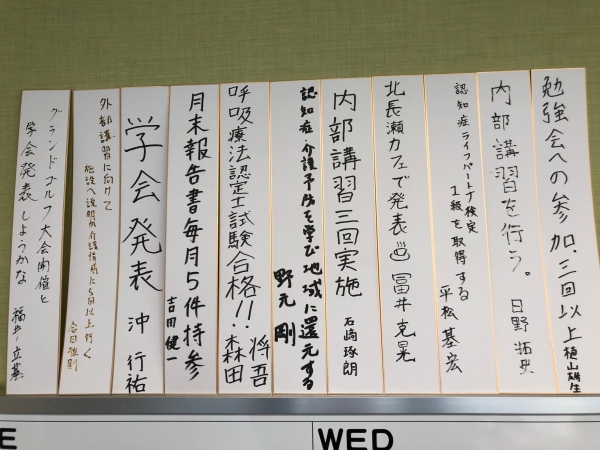 勉強会への参加.三回以上
植山雄生
内部講習を行う。
日野 拓史
認知症ライフパートナー検定
1級を取得する
平松 基宏
北長瀬カフェで発表
冨井 克晃
内部講習三回実施
石崎 琢朗
認知症・介護予防を学び地域に還元する
野元 剛
呼吸療法認定士試験合格!!
森田 将吾
月末報告書毎月5件持参
吉田 健一
学会発表
沖 行祐
外部講習に向けて
施設へ説明か介護情報に5日以上行く
グランドゴルフ大会開催と
学会発表しようかな
福井 立基
E
WED